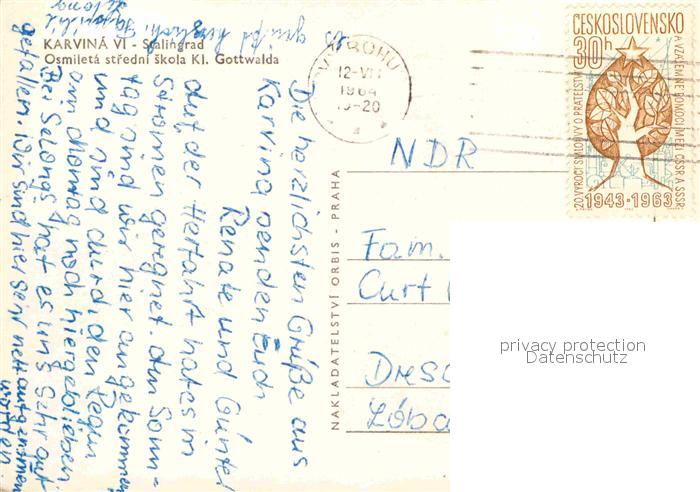 KARVINÁ VI - Stalingrad
Osmiletá střední škola Kl. Gottwalda
Die herzlichsten Grüße aus
Karvina senden Euch
Renate und Günter
Auf der Herfahrt hat es in
Strömen geregnet. Am Sonn-
tag sind wir hier angekommen
und sind durch den Regen
am Montag noch hiergeblieben
hat es uns sehr gut
gefallen. Wir sind hier sehr nett aufgenommen
worden.
grüßt herzlich
NAKLADATELSTVÍ ORBIS - PRAHA
12-VII
1964
19-20
ČESKOSLOVENSKO
30h
20. VÝROČÍ SMLOUVY O PŘÁTELSTVÍ
A VZÁJEMNÉ POMOCI MEZI ČSSR A SSSR
1943-1963
NDR
Fam.
Curt
Dres
Löba
privacy protection
Datenschutz